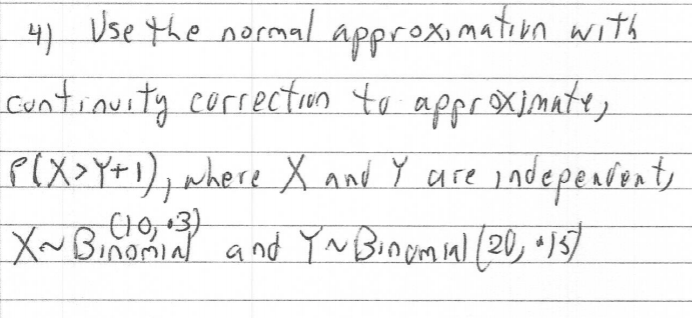 4) Use the normal approximation with
continuity correction to approximate,
P(X>Y+1), where X and Y are independent,
X~Binomial (10, .3) and Y~Binomial (20, .15)